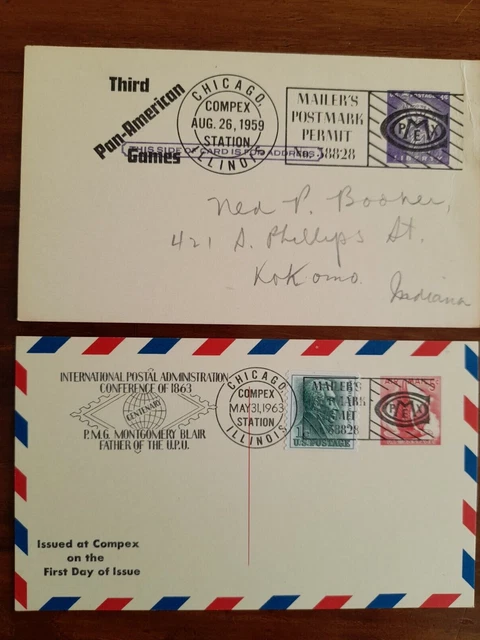 Third
Pan-American
Games
CHICAGO,
COMPEX
AUG. 26, 1959
STATION
ILLINOIS
MAILER'S
POSTMARK
PERMIT
No. 38828
COMPEX
LIBERTY
THIS SIDE OF CARD IS FOR ADDRESS
Ned P. Booher,
421 S. Phillips St.
Kokomo.
Indiana
INTERNATIONAL POSTAL ADMINISTRATION
CONFERENCE OF 1863
CENTENARY
P.M.G. MONTGOMERY BLAIR
FATHER OF THE U.P.U.
CHICAGO,
COMPEX
MAY 31, 1963
STATION
ILLINOIS
MAILER'S
38828
1¢ U.S. POSTAGE
COMPEX
Issued at Compex
on the
First Day of Issue